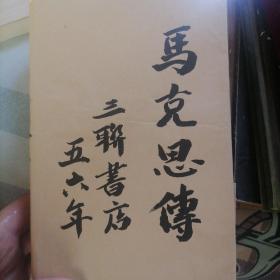 馬克思傳
三聯書店
五六年